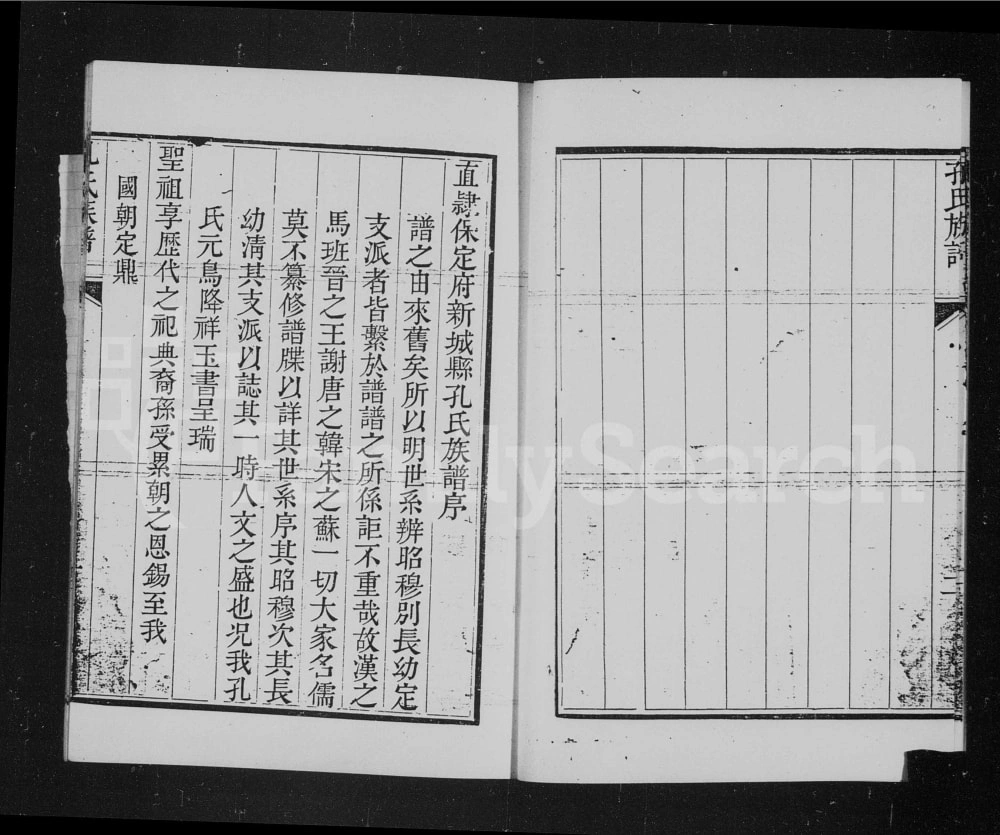 孔氏族譜
二
直隸保定府新城縣孔氏族譜序
譜之由來舊矣所以明世系辨昭穆別長幼定
支派者皆繫於譜譜之所係詎不重哉故漢之
馬班晉之王謝唐之韓宋之蘇一切大家名儒
莫不纂修譜牒以詳其世系序其昭穆次其長
幼淸其支派以誌其一時人文之盛也况我孔
氏元鳥降祥玉書呈瑞
聖祖享歷代之祀典裔孫受累朝之恩錫至我
國朝定鼎
氏族譜